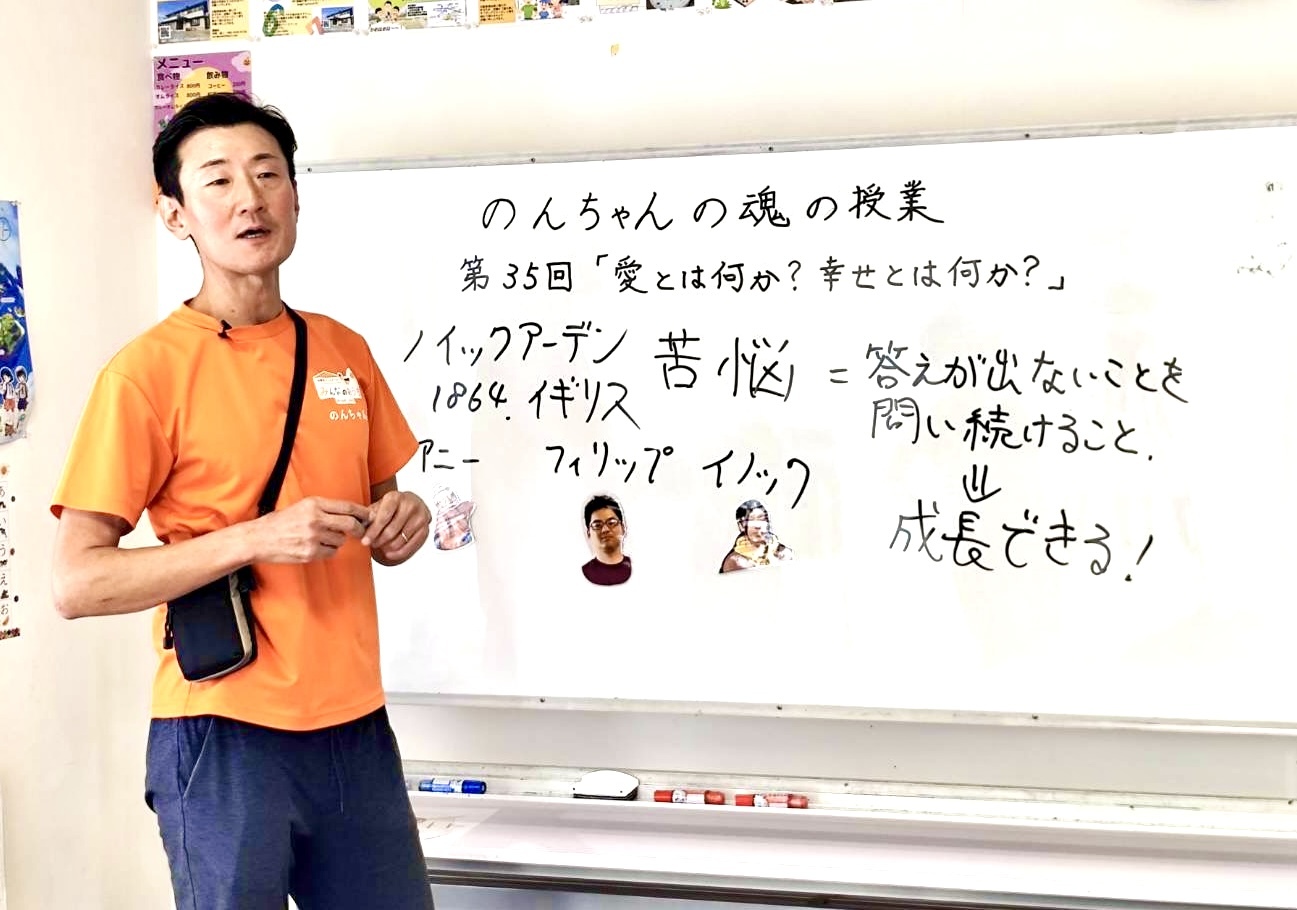 メニュー
食べ物 飲み物
カレーライス 800円 コーヒー
オムライス 800円
のんちゃんの魂の授業
第35回「愛とは何か?幸せとは何か?」
ノイックアーデン
1864.イギリス
アニー フィリップ イノック
苦悩 = 答えが出ないことを
問い続けること.
⇓
成長できる!
のんちゃん
あ
い
う
え
お